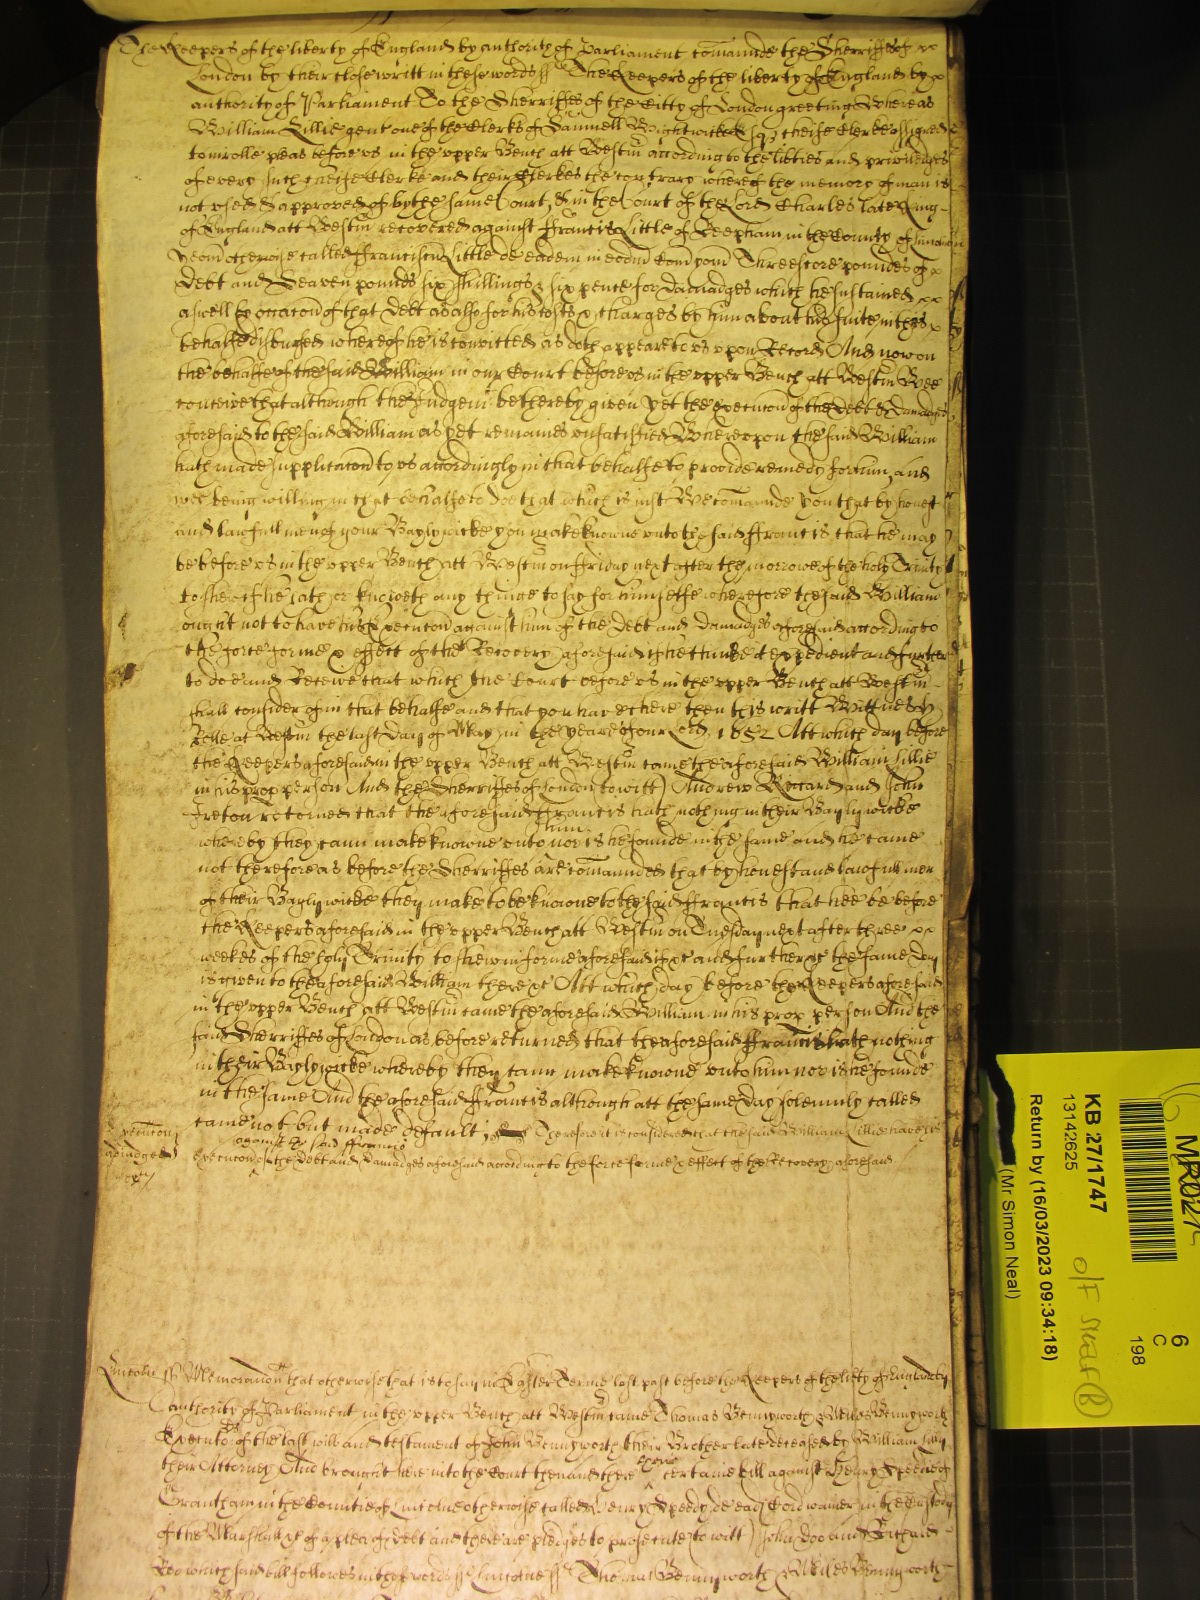 The Keepers of the liberty of England by authority of Parliament comaunde the Sherriffes of
London by their close writt in these words ss The Keepers of the liberty of England by
authority of Parliament To the Sherriffes of the Citty of London greeting Whereas
William Lillie gent one of the Clerks of Samuell Wightwicke Esq cheife Clerke assigned
to inrolle pleas before us in the upper Bench att Westm according to the libties and priviledges
of every such cheife Clerke and their Clerkes the contrary whereof the memory of man is
not used & approved of by the same Court & in the Court of the Lord Charles late King
of England att Westm recovered against Francis Little of Reepham in the County of Lincoln
yeom otherwise called Franciscu Little de eadem in eodm Com yeom Threescore poundes of
Debt and Seaven poundes six shillings & six pence for Damadges which he sustained
aswell by occacon of that Debt as also for his costs & charges by him about his suite in this
behalfe disbursed whereof he is convicted as doth appeare to us upon Record And now on
the behalfe of the said William in our Court before us in the upper Bench att Westm Wee
conceive that although the Judgemt be thereby given yet the execucon of the Debt & Damadges
aforesaid to the said William as yet remaines unsatisfied Whereupon the said William
hath made supplicacon to us accordingly in that behalfe to provide remedy for him and
wee being willing in that behalfe to doe that which is just We comaunde you that by honest
and lawfull men of your Baylywicke you make knowne unto the said Francis that he may
be before us in the upper Bench att Westm on Friday next after the morrowe of the holy Trinity
to shew if he hath or knoweth any thinge to say for himselfe wherefore the said William
ought not to have his Execucon against him of the Debt and Damadges aforesaid according to
the force forme & effect of the Recovery aforesaid if he thinke it expedient and further
to doe and Receive that which the Court before us in the upper Bench att Westm
shall consider of in that behalfe and that you have there then this writt Wittnes H
Rolle at Westm the last day of May in the yeare of our Lord 1652 Att which day before
the Keepers aforesaid in the upper Bench att Westm came the aforesaid William Lillie
in his prop person And the Sherriffes of London to witt) Andrew Riccard and John
Ireton retorned that the aforesaid Francis hath nothing in their Baylywicke
whereby they cann make knowne unto him nor is he founde in the same and he came
not therefore as before the Sherriffes are comaunded that by honest and lawfull men
of their Baylywicke they make to be knowne to the said Francis that hee be before
the Keepers aforesaid in the upper Bench att Westm on Tuesday next after three
weekes of the holy Trinity to shew in forme aforesaid if &c and further &c the same day
is given to the aforesaid William there &c Att which day before the Keepers aforesaid
in the upper Bench att Westm came the aforesaid William in his prop person And the
said Sherriffes of London as before returned that the aforesaid Francis hath nothing
in their Baylywicke whereby they cann make knowne unto him nor is he founde
in the same And the aforesaid Francis although att the same day solemnly called
came not but made default Therefore it is considered that the said William Lillie have his
Execucon
adjudged
against the said Francis
execucon of the Debt and Damadges aforesaid according to the force forme & effect of the Recovery aforesaid
Lincoln ss Memorandu that otherwise that is to say in Easter Terme last past before the Keepers of the libty of England by
authority of Parliament in the upper Bench att Westm came Thomas Bennyworth & Miles Bennyworth
Executors of the last will and testament of John Bennyworth their Brother late deceased by William Lilly
their Attorney And brought here into the Court then and there their certaine bill against Henry Speede of
Grantham in the Countie of Lincolne otherwise called Henry Speedy de ead Cordwainer in the custody
of the Marshall &c of a plea of Debt and there are pledges to prosecute to witt) John Doo and Richard
Roo which said bill followes in these words ss Lincolne ss Thomas Bennyworth & Miles Bennyworth
MR027
6
C
198
KB 27/1747
13142625
O/F
Return by (16/03/2023 09:34:18)
(Mr Simon Neal)